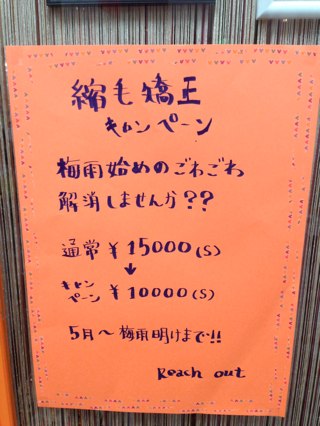 縮毛矯正
キャンペーン
梅雨始めのごわごわ
解消しませんか??
通常 ¥15000(S)
↓
キャンペーン ¥10000(S)
5月〜梅雨明けまで!!
Reach out